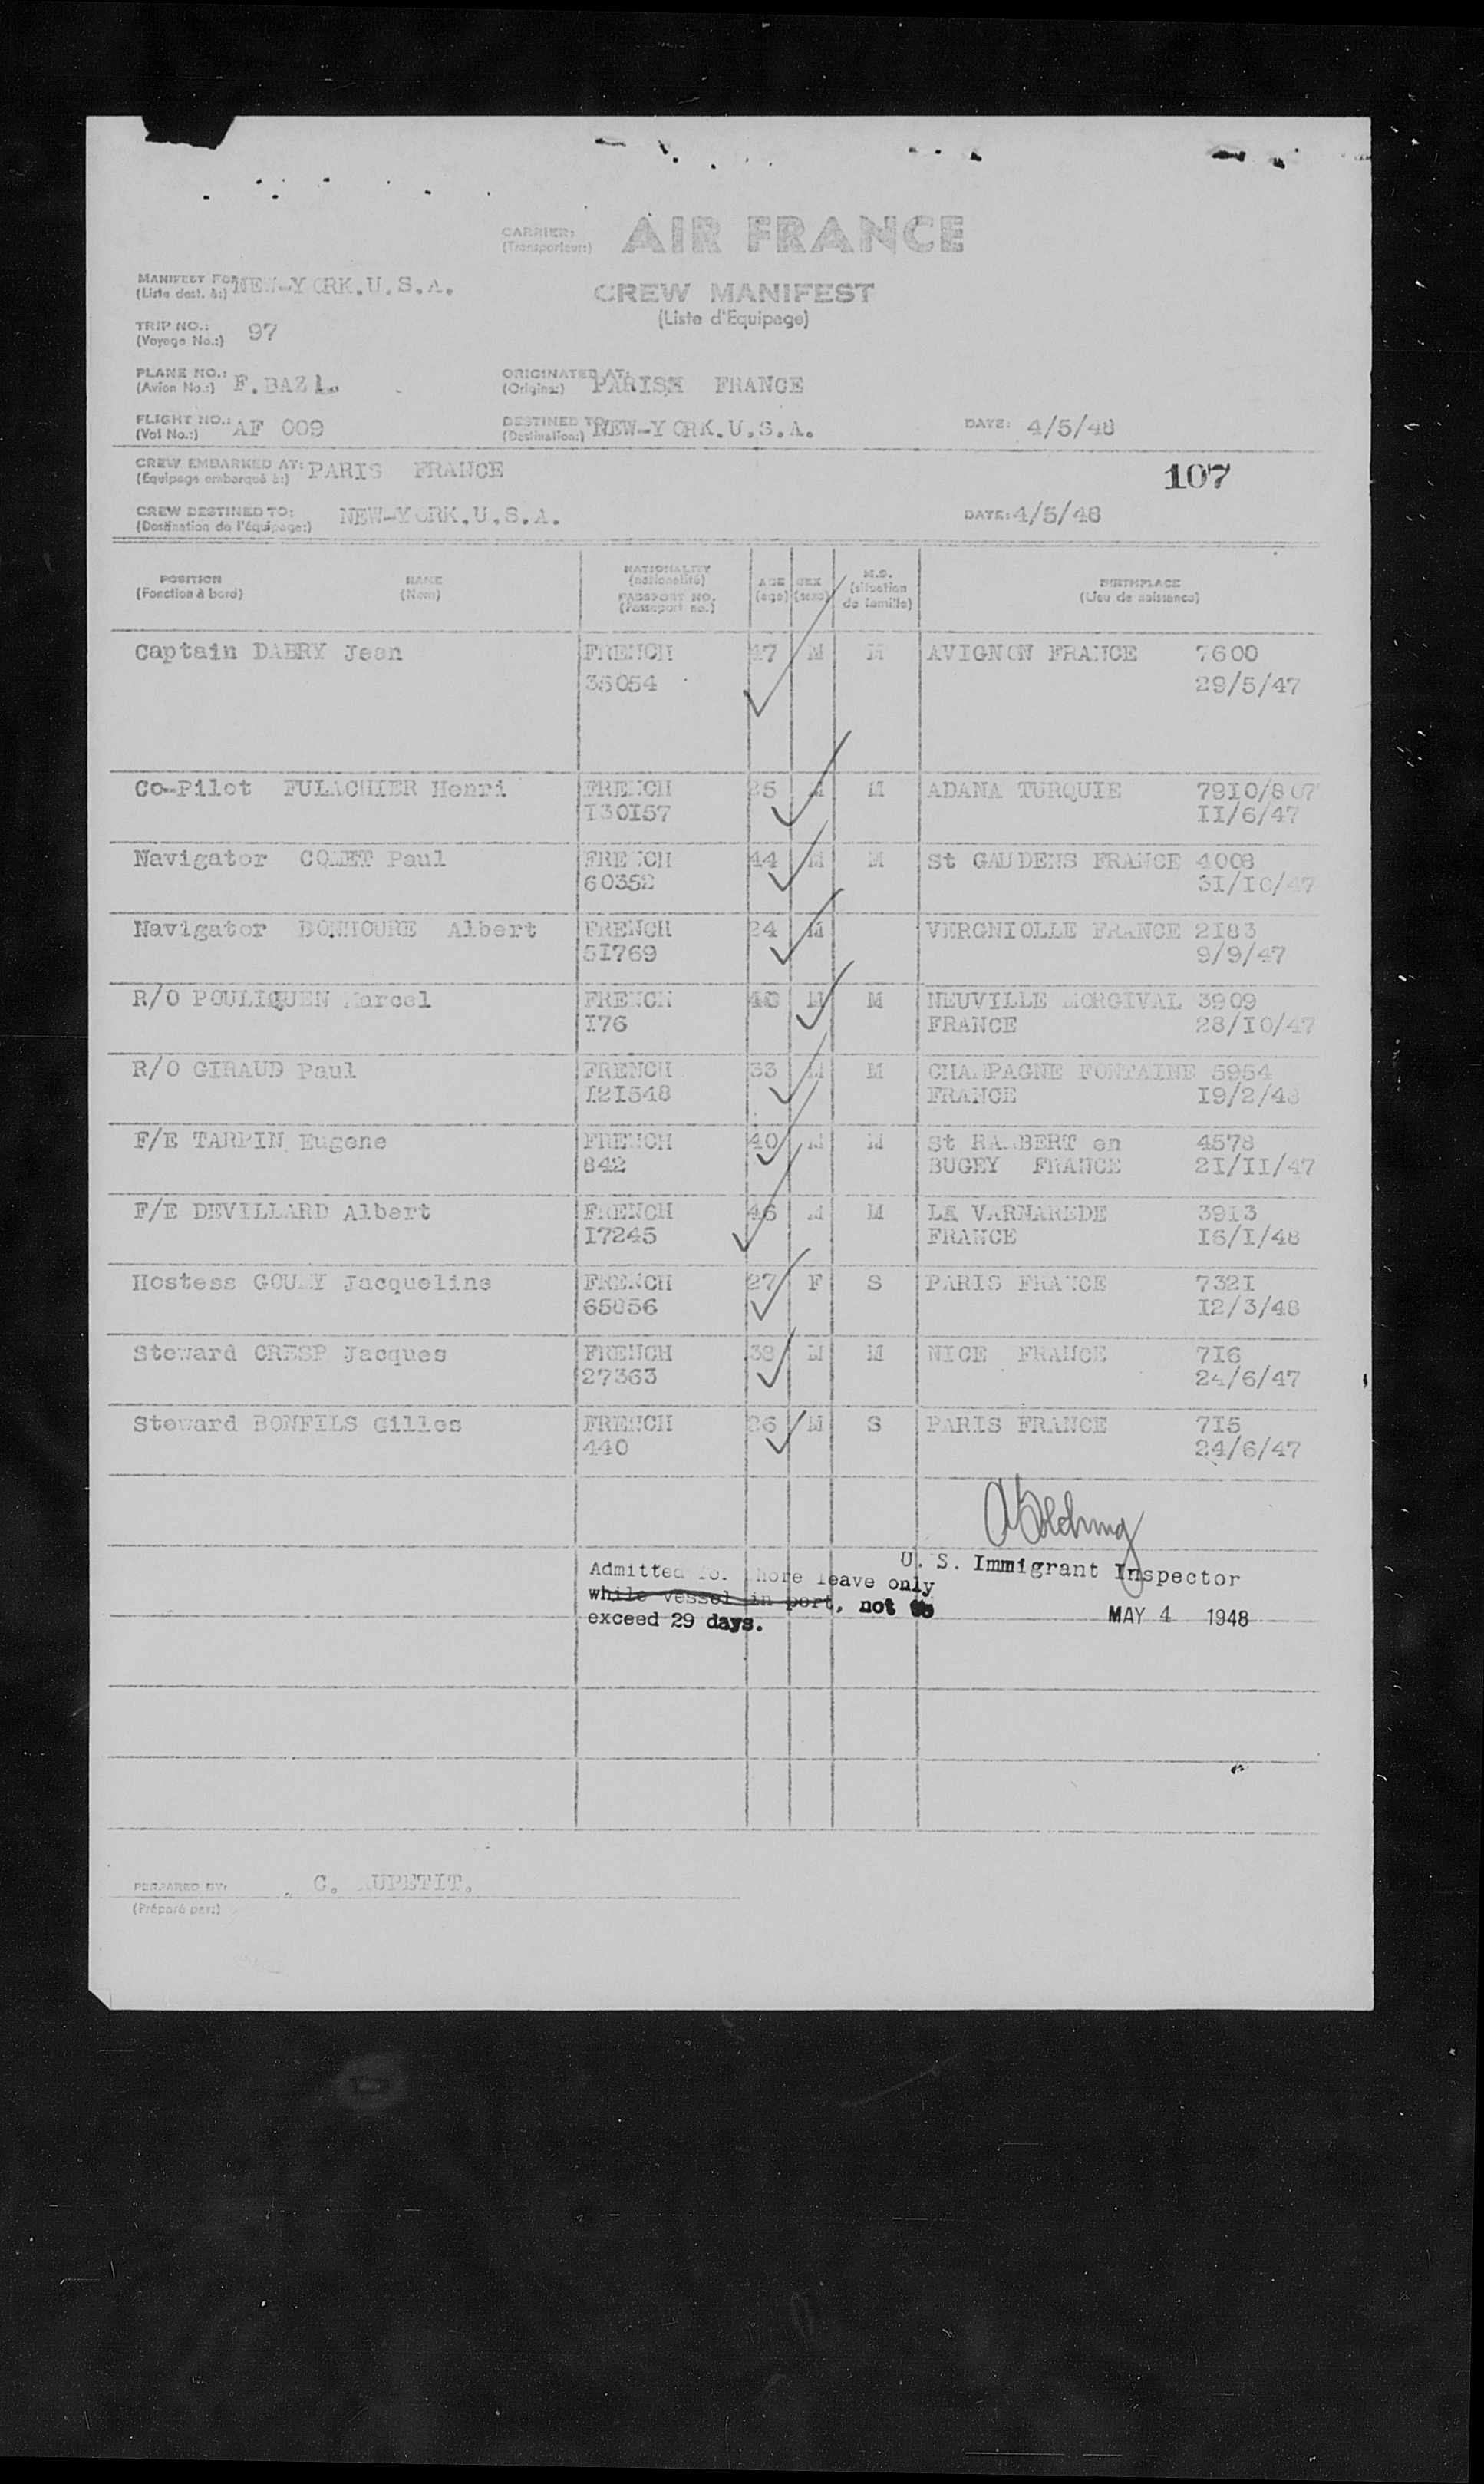 CARRIER: AIR FRANCE
(Transporteur:)
MANIFEST FOR NEW-YORK.U.S.A.
(Liste dest. à:)
CREW MANIFEST
(Liste d'Equipage)
TRIP NO.: 97
(Voyage No.:)
PLANE NO.: F.BAZL
(Avion No.:)
ORIGINATED AT: PARIS FRANCE
(Origine:)
FLIGHT NO.: AF 009
(Vol No.:)
DESTINED TO NEW-YORK.U.S.A.
(Destination:)
DATE: 4/5/48
CREW EMBARKED AT: PARIS FRANCE
(Equipage embarqué à:)
107
CREW DESTINED TO: NEW-YORK.U.S.A.
(Destination de l'équipage:)
DATE: 4/5/48
POSITION NAME NATIONALITY AGE SEX M.S. BIRTHPLACE
(Fonction à bord) (Nom) (nationalité) (age) (sexe) (situation de famille) (Lieu de naissance)
PASSPORT NO.
(Passeport no.)
Captain DABRY Jean FRENCH 47 M M AVIGNON FRANCE 7600
35054 29/5/47
Co-Pilot FULACHIER Henri FRENCH 25 M M ADANA TURQUIE 7910/807
130157 II/6/47
Navigator COMET Paul FRENCH 44 M M St GAUDENS FRANCE 4008
60352 31/10/47
Navigator BONHOURE Albert FRENCH 24 M VERGNIOLLE FRANCE 2183
51769 9/9/47
R/O POULIQUEN Marcel FRENCH 48 M M NEUVILLE 3909
176 FRANCE 28/10/47
R/O GIRAUD Paul FRENCH 33 M M CHAMPAGNE FONTAINE 5954
121548 FRANCE 19/2/48
F/E TARPIN Eugene FRENCH 40 M M St RAMBERT en 4578
842 BUGEY FRANCE 21/11/47
F/E DEVILLARD Albert FRENCH 46 M M LA VARNAREDE 3913
17245 FRANCE 16/1/48
Hostess Jacqueline FRENCH 27 F S PARIS FRANCE 7321
65856 12/3/48
Steward CRESP Jacques FRENCH 38 M M NICE FRANCE 716
27363 24/6/47
Steward BONFILS Gilles FRENCH 26 M S PARIS FRANCE 715
440 24/6/47
U. S. Immigrant Inspector
Admitted for shore leave only
while vessel in port, not to
exceed 29 days.
MAY 4 1948
PREPARED BY: C. AUPETIT.
(Préparé par:)